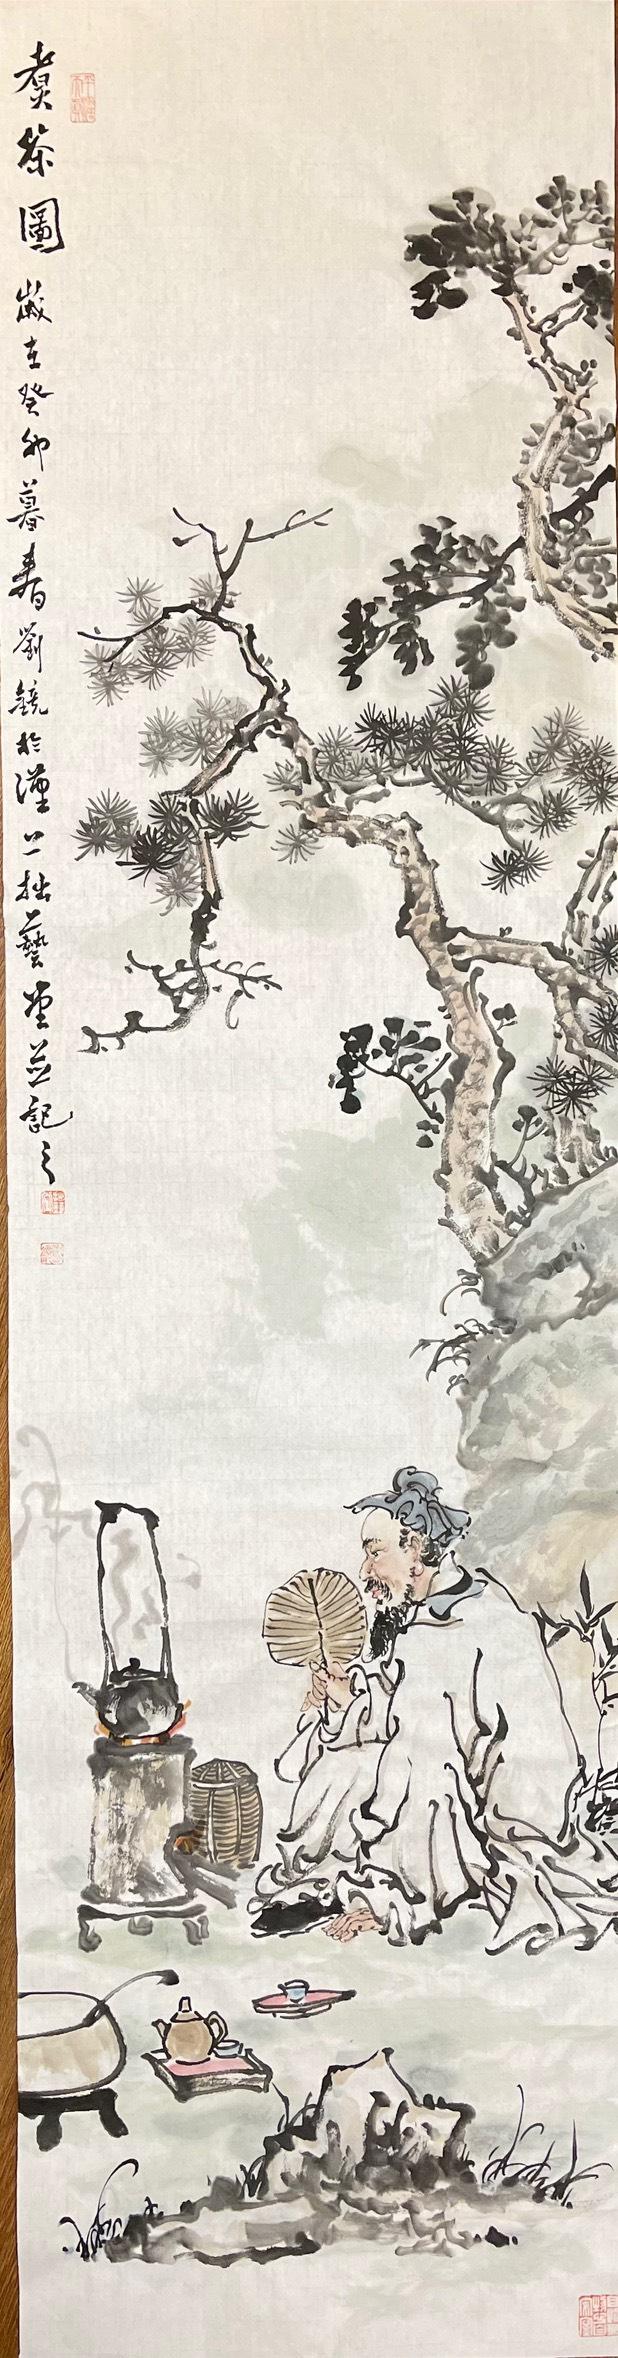 煮茶圖 歲在癸卯暮春劉鏡於漢上拙藝堂並記之